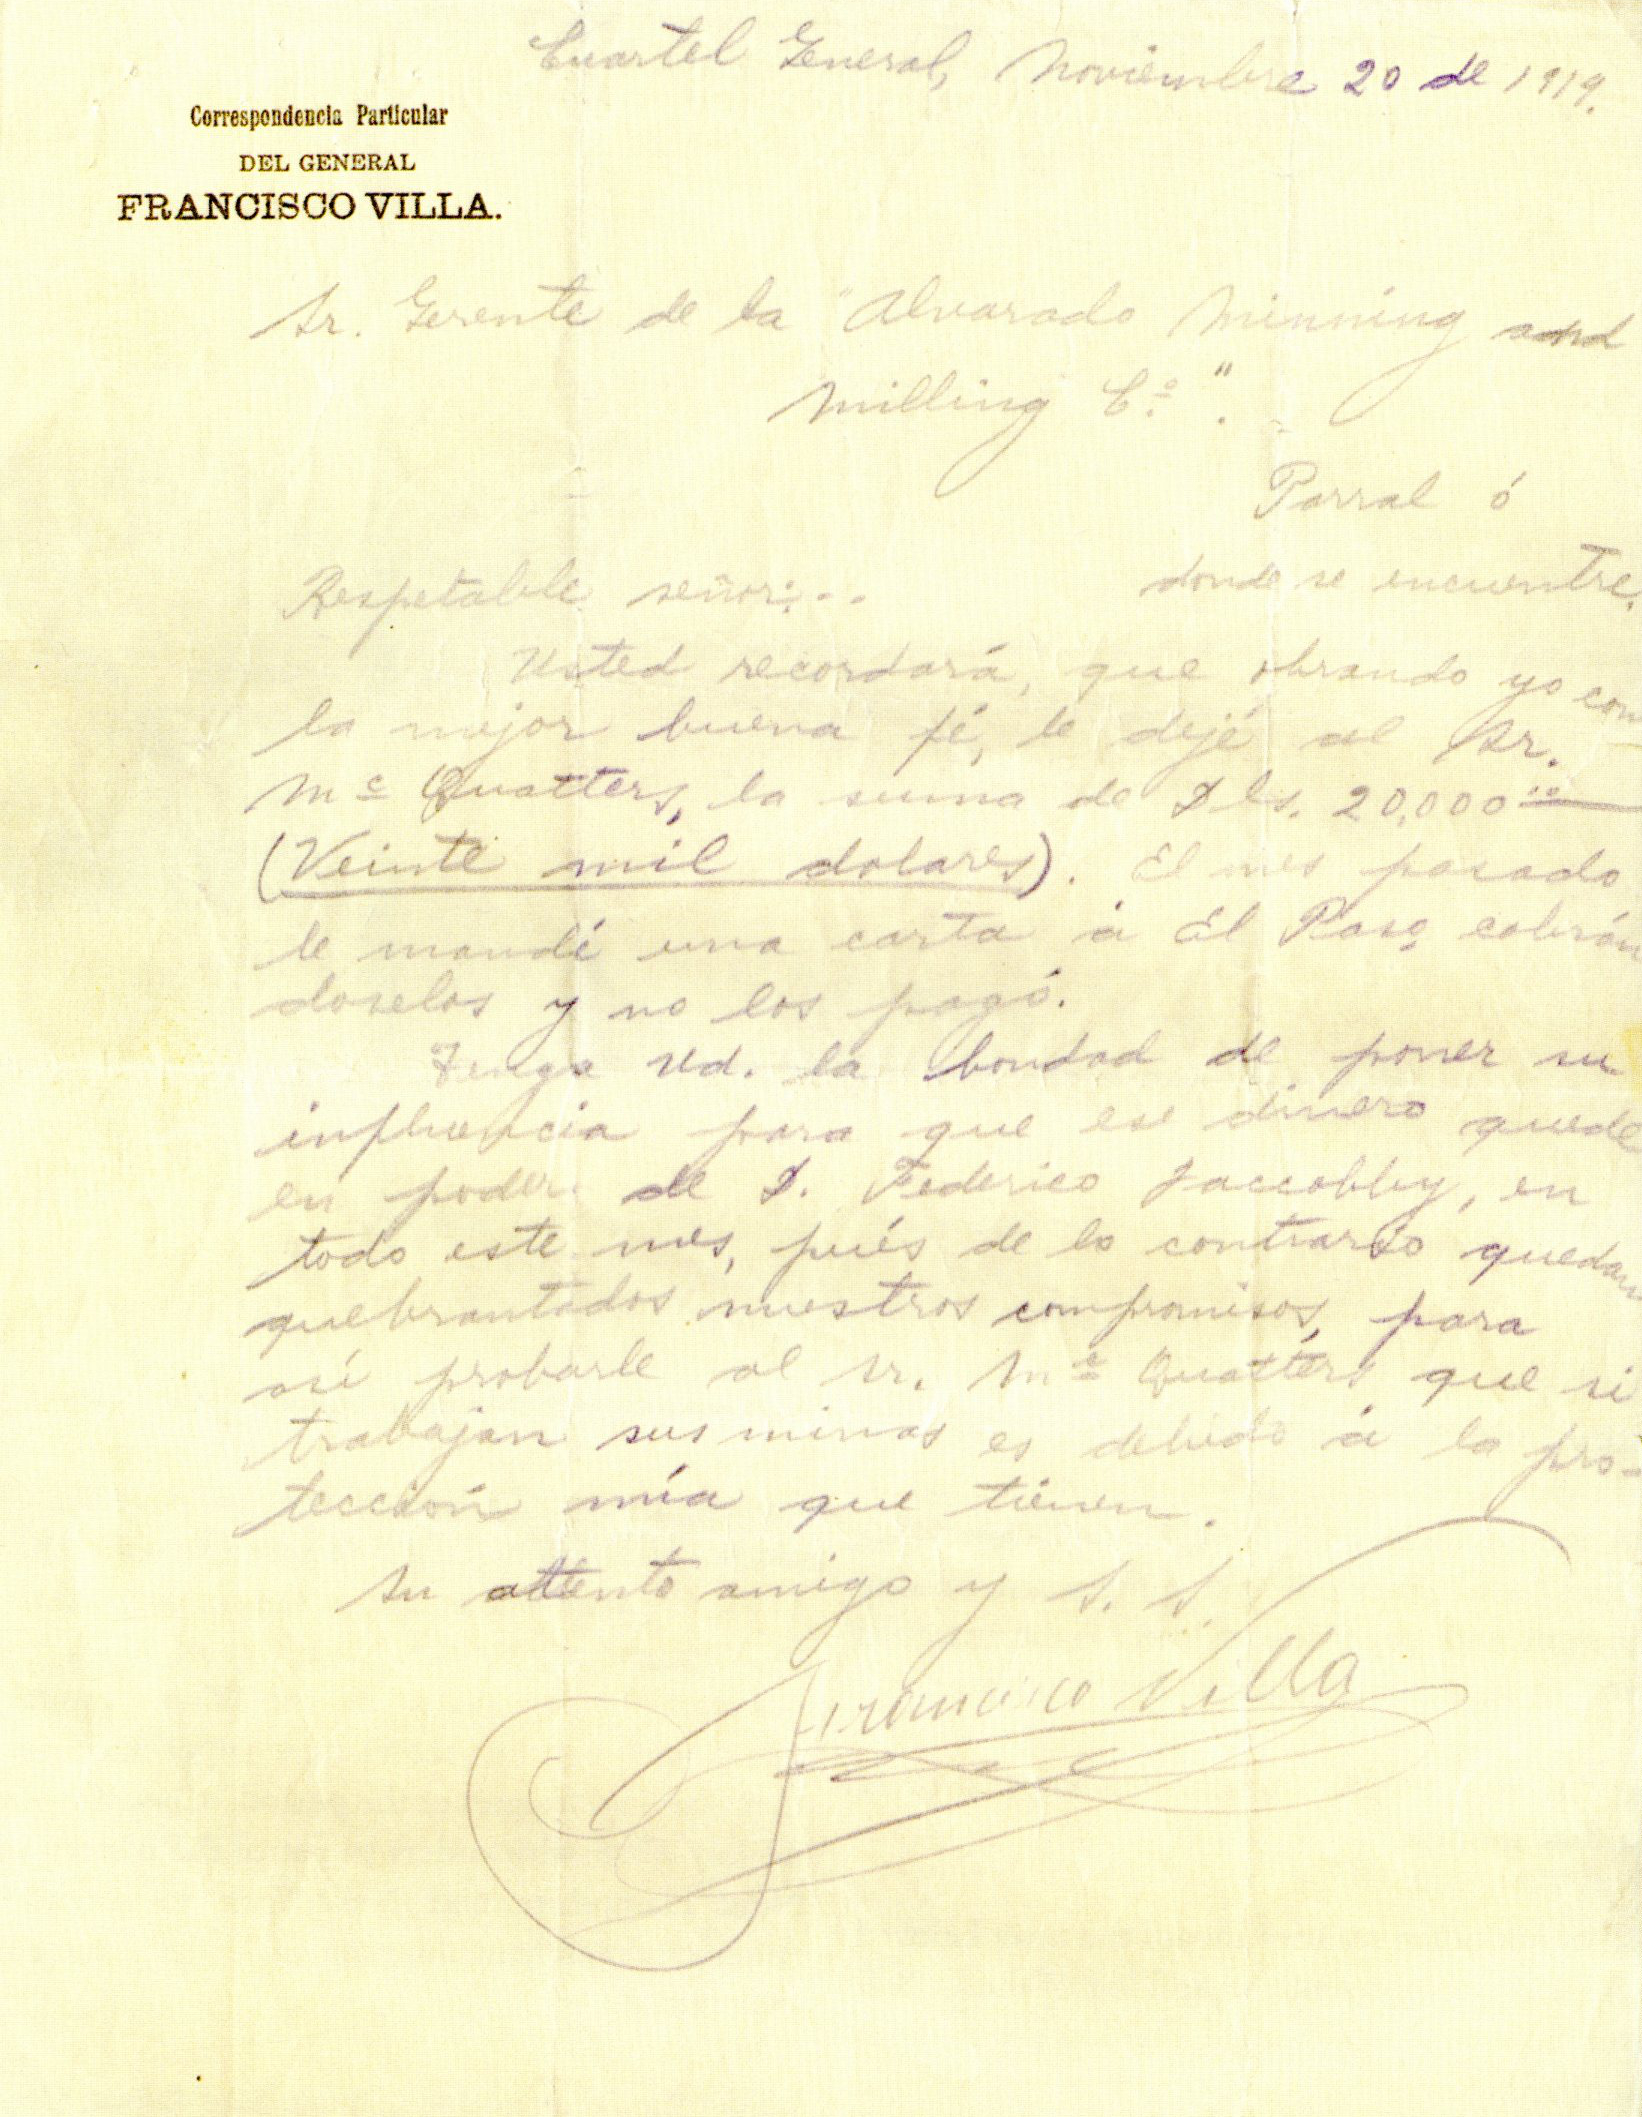 Cuartel General, Noviembre 20 de 1919.
Correspondencia Particular
DEL GENERAL
FRANCISCO VILLA.
Sr. Gerente de la "Alvarado Minning and
Milling Cº".
Parral ó
donde se encuentre.
Respetable señor:--
Usted recordará, que obrando yo con
la mejor buena fé, le dejé al Sr.
Mc Quatters, la suma de Dls. 20,000.00
(Veinte mil dolares). El mes pasado
le mandé una carta á El Paso, cobrán
doselos y no los pagó.
Tenga Ud. la bondad de poner su
influencia para que ese dinero quede
en poder de D. Federico Jaccobby, en
todo este mes, pués de lo contrario quedan
quebrantados nuestros compromisos, para
así probarle al Sr. Mc Quatters que si
trabajan sus minas es debido á la pro-
tección mía que tienen.
Su attento amigo y S. S.
Francisco Villa